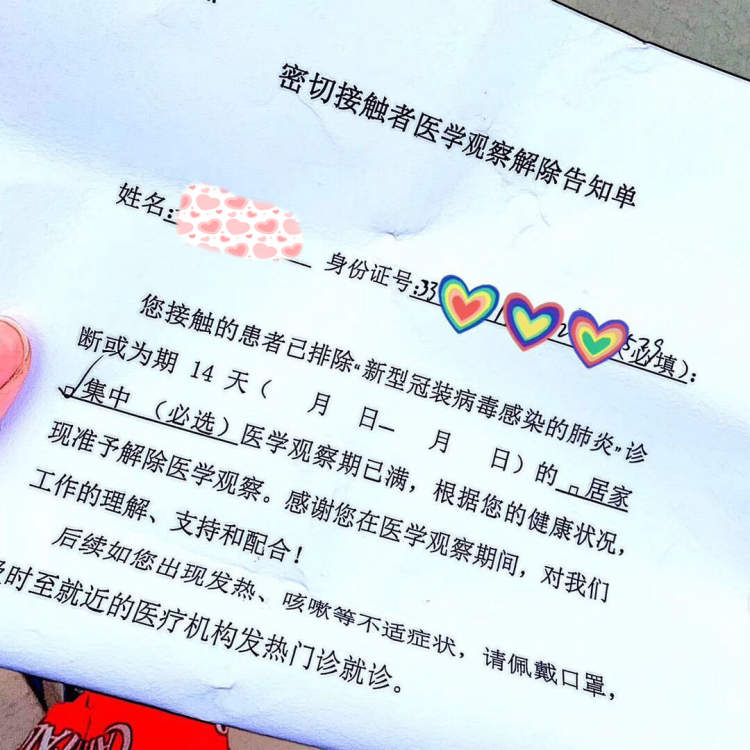 密切接触者医学观察解除告知单
姓名: 身份证号:33 (必填):
您接触的患者已排除“新型冠装病毒感染的肺炎”诊
断或为期 14 天( 月 日— 月 日)的 □居家
☑集中 (必选) 医学观察期已满,根据您的健康状况,
现准予解除医学观察。感谢您在医学观察期间,对我们
工作的理解、支持和配合!
后续如您出现发热、咳嗽等不适症状,请佩戴口罩,
及时至就近的医疗机构发热门诊就诊。